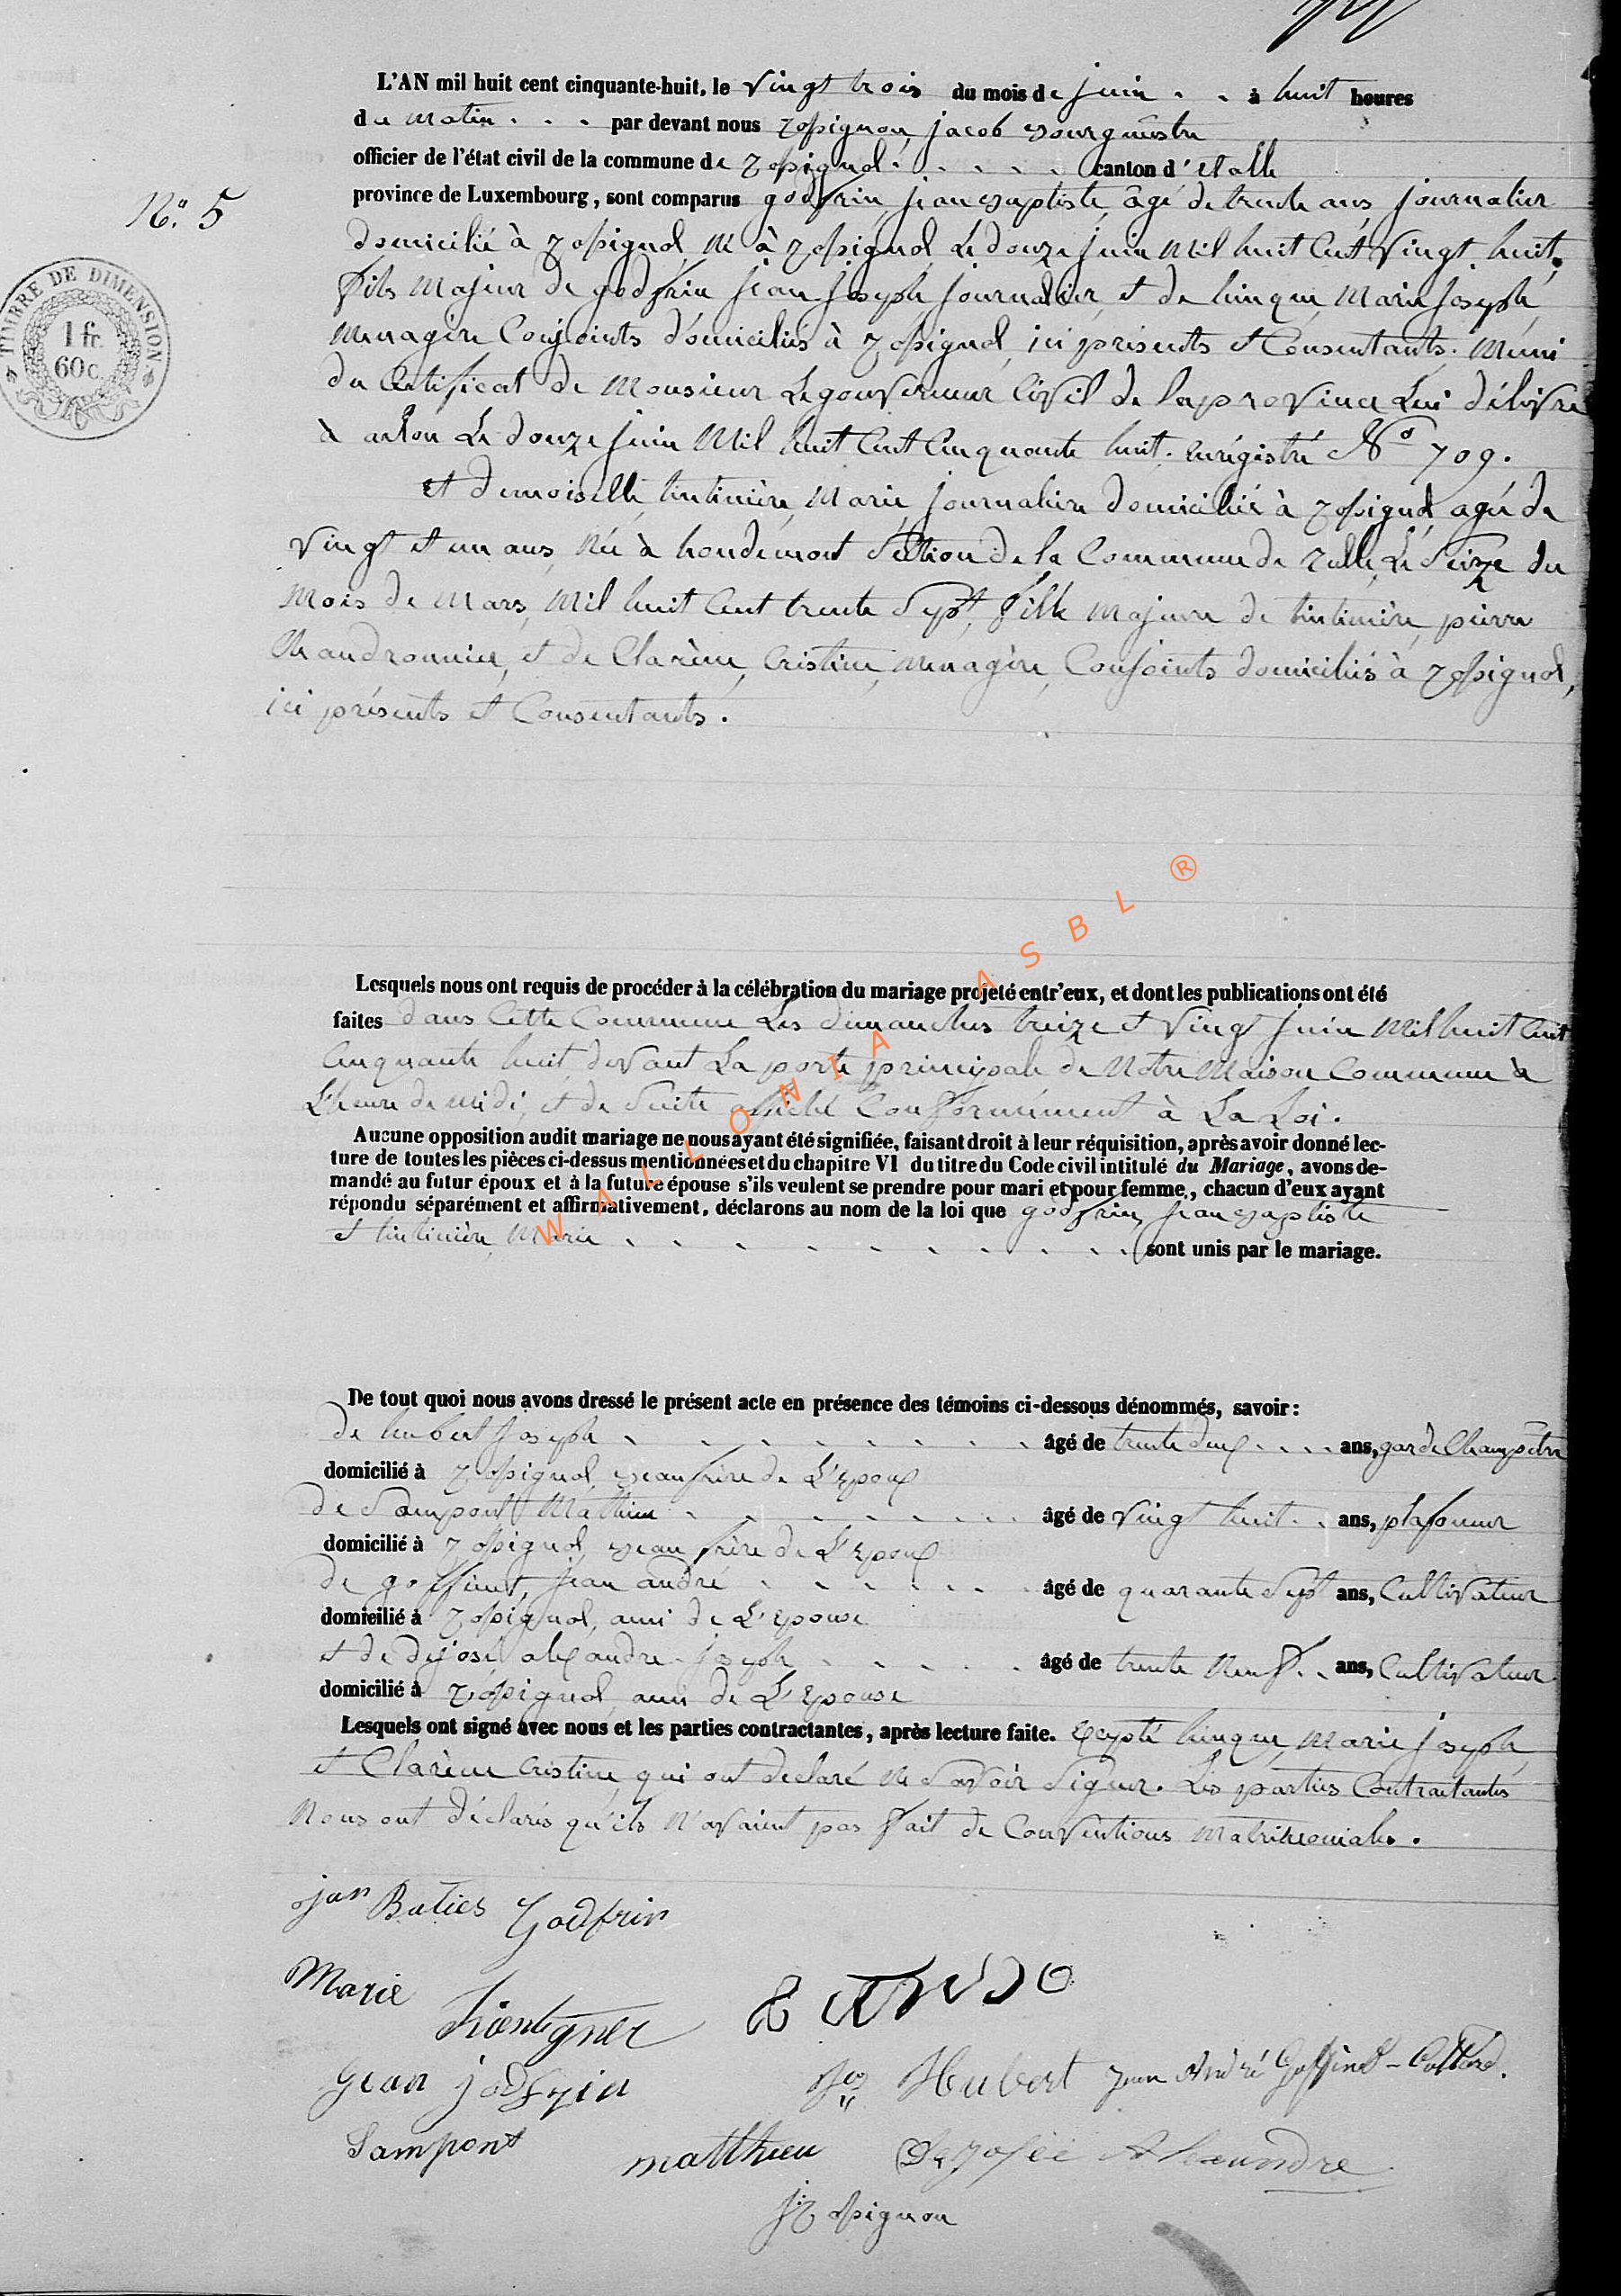 L'AN mil huit cent cinquante-huit, le vingt trois du mois de juin . . à huit heures
du matin . . . par devant nous Rossignon jacob Bourguestre
officier de l'état civil de la commune de Rossignol . . . . . canton d'Etalle
N.° 5
province de Luxembourg, sont comparus godfrin, jean Baptiste, âgé de trente ans, journalier
domicilié à Rossignol, né à Rossignol, Le douze juin Mil huit Cent vingt huit,
fils Majeur de godfrin jean joseph, journalier, et de hinque, Marie joseph,
Menagère Conjoints domiciliés à Rossignol, ici présents et Consentants. Muni
TIMBRE DE DIMENSION
1 fr.
60 c
du Certificat de Monsieur Le gouverneur Civil de la province Lui délivré
à arlon Le douze juin Mil huit Cent Cinquante huit. enrégistré N° 709.
et demoiselle, tintinière, Marie, journalière domiciliée à Rossignol, agée de
vingt et un ans, Née à houdemont Section de la Commune de Rulle, Le Seize du
Mois de Mars, Mil huit Cent trente Sept, fille Majeure de tintinière, pierre
Chaudronnier, et de Clarème, Cristine, Menagère, Conjoints domiciliés à Rossignol,
ici présents et Consentants.
Lesquels nous ont requis de procéder à la célébration du mariage projeté entr'eux, et dont les publications ont été
faites dans Cette Commune Les dimanches treize et vingt juin Mil huit Cent
Cinquante huit, devant La porte principale de Notre Maison Commune à
L'heure de midi, et de Suite affiché Conformément à La Loi.
Aucune opposition audit mariage ne nous ayant été signifiée, faisant droit à leur réquisition, après avoir donné lec-
ture de toutes les pièces ci-dessus mentionnées et du chapitre VI du titre du Code civil intitulé du Mariage, avons de-
mandé au futur époux et à la future épouse s'ils veulent se prendre pour mari et pour femme, chacun d'eux ayant
répondu séparément et affirmativement, déclarons au nom de la loi que godfrin, jean Baptiste
et tintinière, Marie . . . . . . . . . . sont unis par le mariage.
WALLONIA ASBL ®
De tout quoi nous avons dressé le présent acte en présence des témoins ci-dessous dénommés, savoir:
de hubert joseph . . . . . . . . âgé de trente deux . . . . ans, garde Champêtre
domicilié à Rossignol, Beau frère de L'Epoux
de Sampont Mathieu . . . . . . . âgé de vingt huit . . ans, plafonneur
domicilié à Rossignol, Beau frère de L'Epoux
de goffinet, jean andré . . . . . . âgé de quarante Sept ans, Cultivateur
domicilié à Rossignol, ami de L'Epouse
et de dejosé alexandre joseph . . . . . âgé de trente Neuf . . ans, Cultivateur
domicilié à Rossignol ami de L'Epouse
Lesquels ont signé avec nous et les parties contractantes, après lecture faite. Excepté hinque, Marie joseph
et Clarème Cristine, qui ont declaré Ne Savoir Signer. Les parties Contractantes
Nous ont déclarés qu'ils N'avaient pas fait de Conventions Matrimoniales.
jan Baties Godfrin
Marie
Jean
Hubert Jean André Goffinet - Collard.
Sampont matthieu Alexandre
J Rossignon